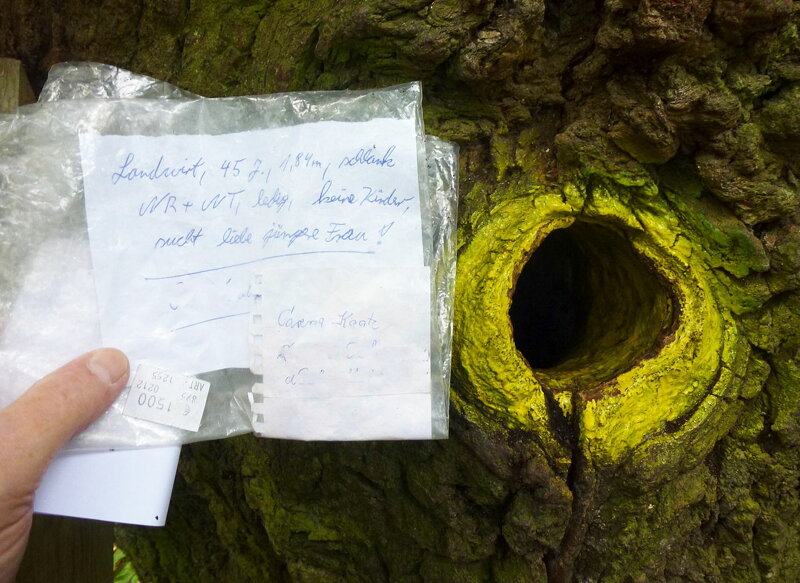 Landwirt, 45 J., 1,84m, schlank
NR + NT, ledig, keine Kinder,
sucht liebe jüngere Frau!
Carena Kaatz
€ 1500
0212
ART. 1255